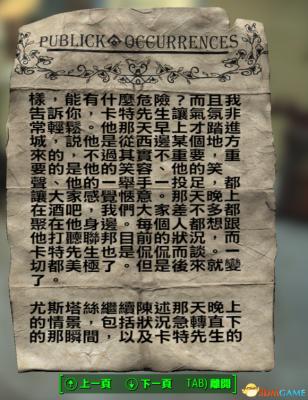 PUBLICK OCCURRENCES
樣，能有什麼危險？而且我
告訴你，卡特先生讓氣氛非
常輕鬆。他那天早上才踏進
城，說他是從西邊某個地方
來的，不過其實不重要，重
要的是他的笑容、他的笑
聲、他的一舉手一投足，都
讓大家感覺愜意。那天晚上
在酒吧，我們大家差不多都
聚在他身邊。每個人都想跟
他打聽聯邦目前的狀況，而
卡特先生也是侃侃而談。一
切都美極了。但是後來就變
了。
尤斯塔絲繼續陳述那天晚上
的情景，包括狀況急轉直下
的那瞬間，以及卡特先生的
上一頁 下一頁 TAB) 離開
3DMGAME